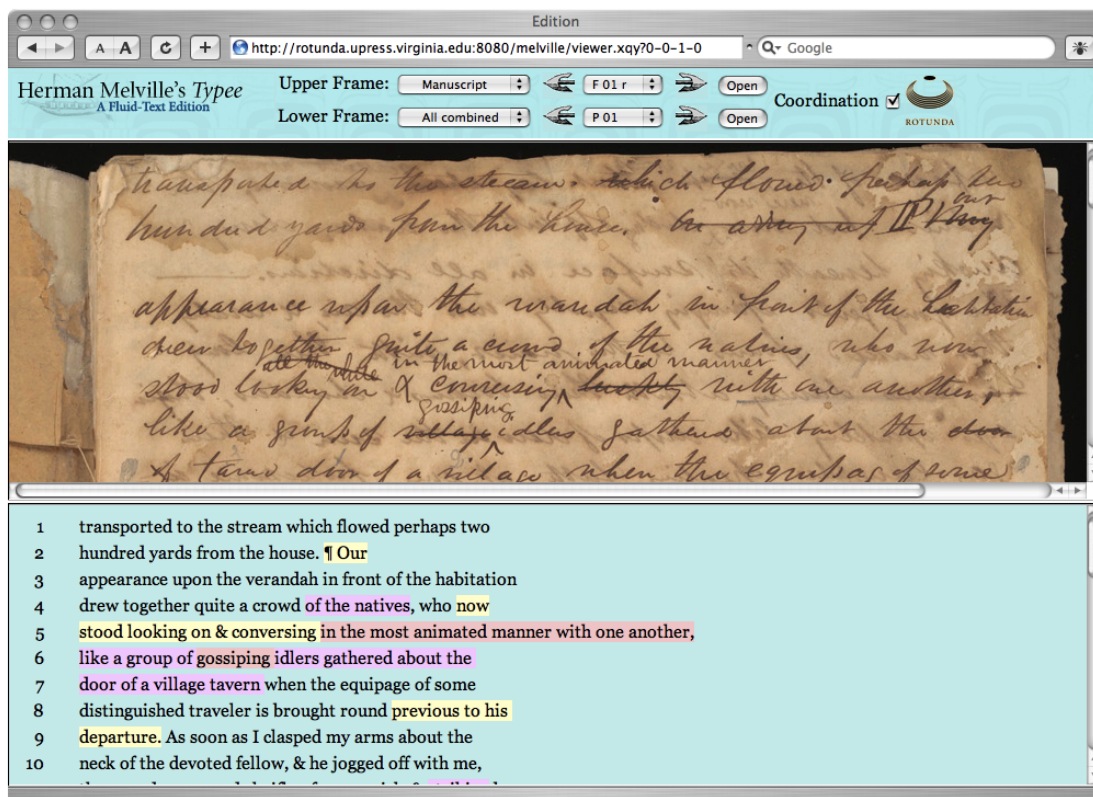 Edition
A A C + http://rotunda.upress.virginia.edu:8080/melville/viewer.xqy?0-0-1-0 Q Google
Herman Melville's Typee
A Fluid-Text Edition
Upper Frame: Manuscript F 01 r Open
Lower Frame: All combined P 01 Open
Coordination
ROTUNDA
transported to the stream. which flowed perhaps two
hundred yards from the house. our
appearance upon the verandah in front of the habitation
drew together quite a crowd of the natives, who now
all the while in the most animated manner
stood looking on & conversing with one another,
gossiping
like a group of village idlers gathered about the door
of door of a village when the equipag of some
1 transported to the stream which flowed perhaps two
2 hundred yards from the house. ¶ Our
3 appearance upon the verandah in front of the habitation
4 drew together quite a crowd of the natives, who now
5 stood looking on & conversing in the most animated manner with one another,
6 like a group of gossiping idlers gathered about the
7 door of a village tavern when the equipage of some
8 distinguished traveler is brought round previous to his
9 departure. As soon as I clasped my arms about the
10 neck of the devoted fellow, & he jogged off with me,